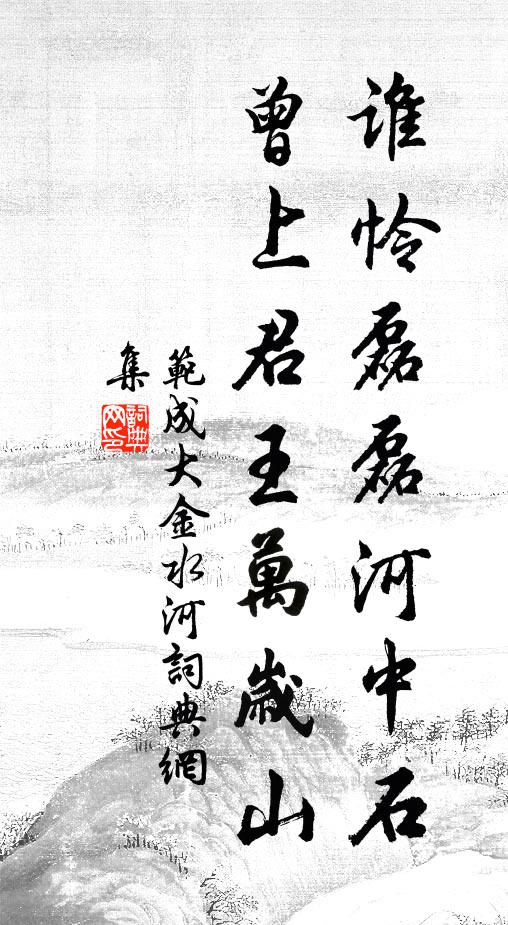 谁怜磊磊河中石
曾上君王萬歲山
範成大金水河詞典網
集
詞典
网印